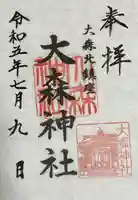 奉拝
大森北鎮座
大森神社
令和五年七月九日